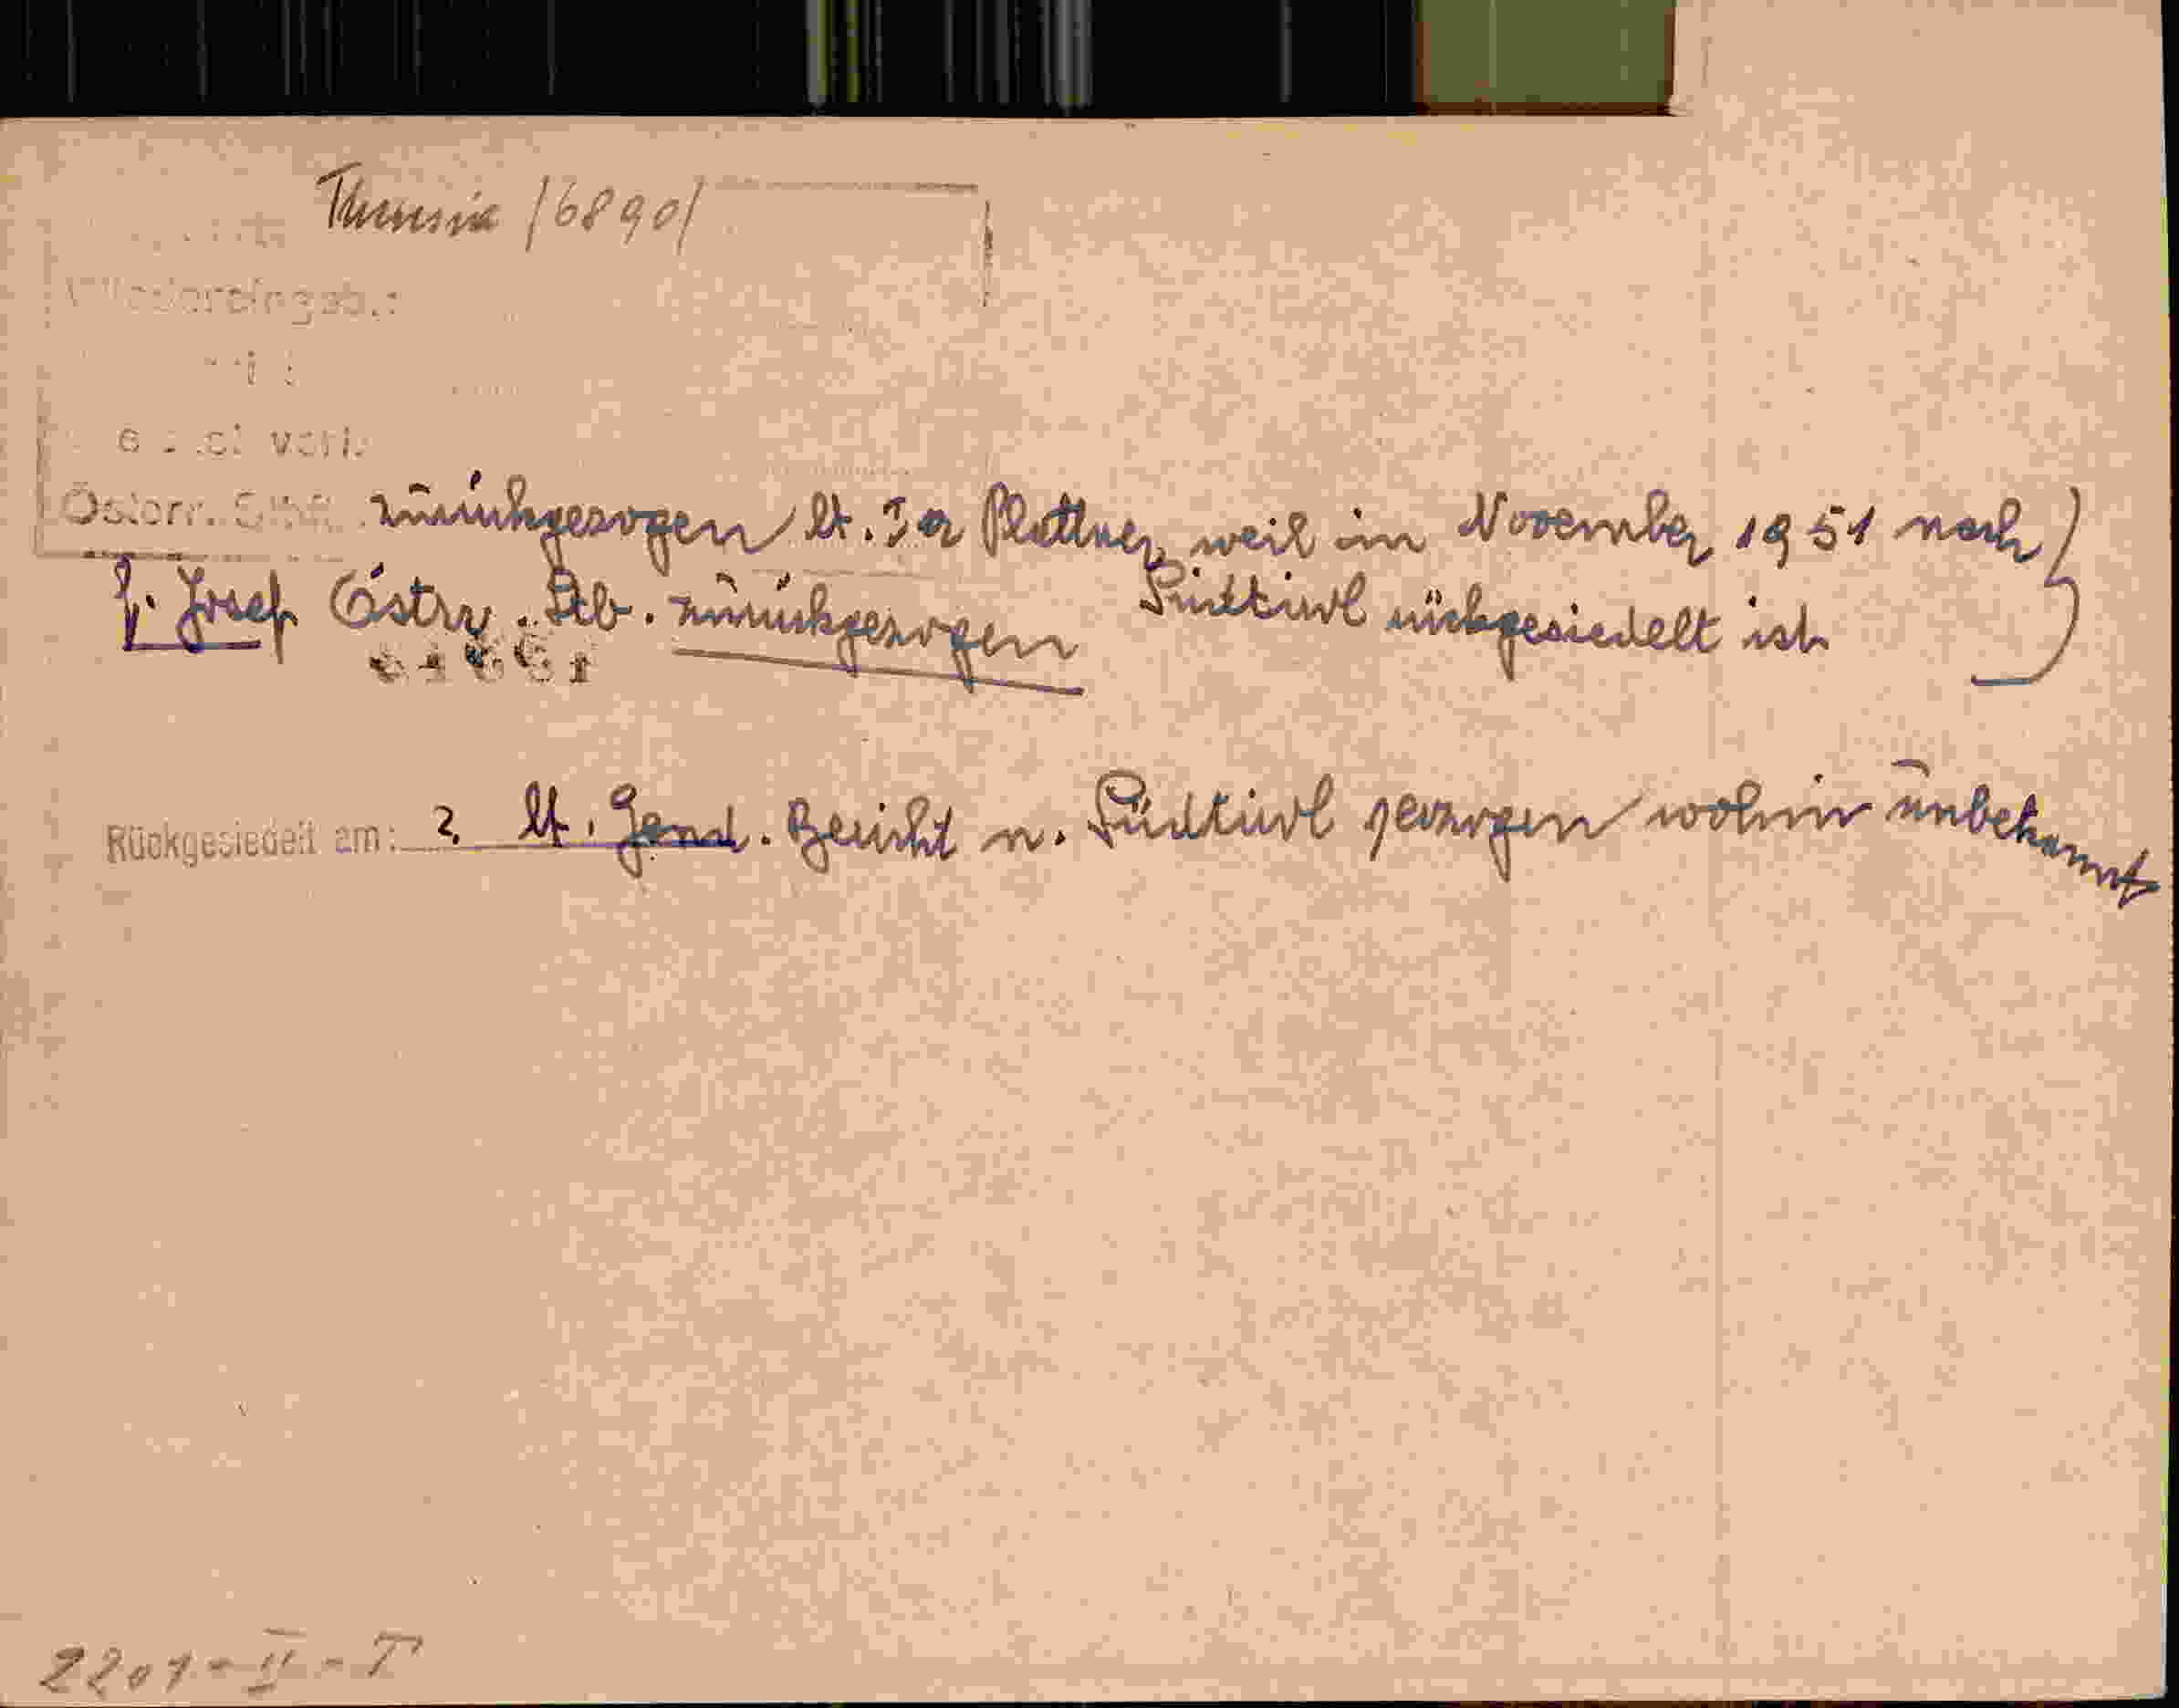 Theresia /6890/
Wiedereingeb.:
Österr. Stb. zurückgezogen lt. Plattner, weil im November 1951 nach
f. Josef Östrr. Stb. zurückgezogen Südtirol rückgesiedelt ist
Rückgesiedelt am: ? lt. Gend. Bericht n. Südtirol gezogen wohin unbekannt
2201-II-T